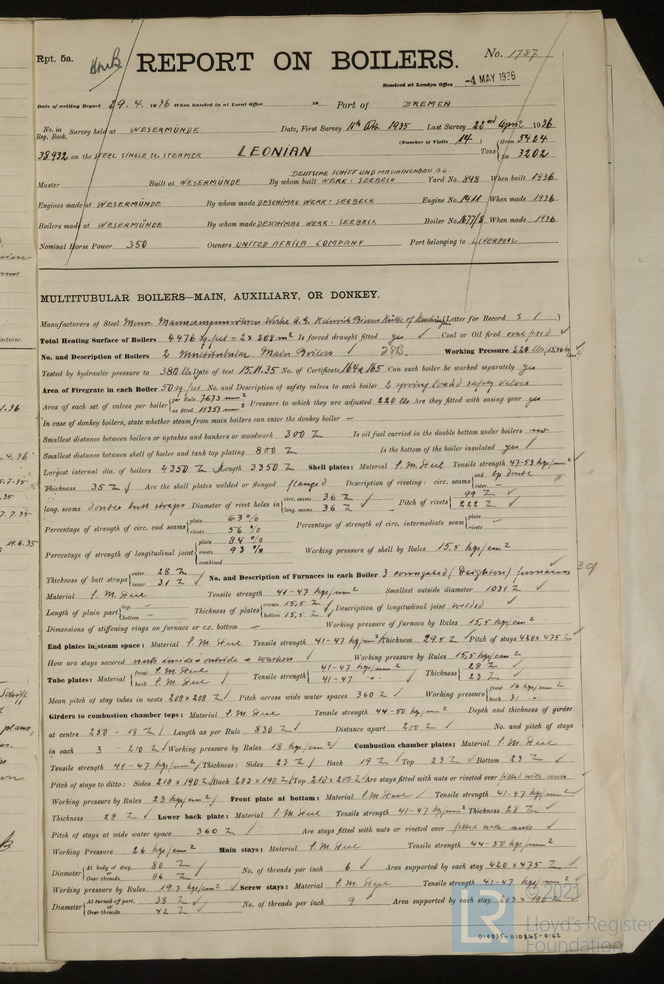 Rpt. 5a.
REPORT ON BOILERS.
No. 1787
Received at London Office -4 MAY 1936
Date of writing Report 29.4.1936 When handed in at Local Office to Port of BREMEN
No. in Reg. Book. Survey held at WESERMÜNDE Date, First Survey 11th Oct. 1935 Last Survey 22nd April 1936
(Number of Visits 14) Gross 5424
38932 on the STEEL SINGLE SC. STEAMER LEONIAN Tons Net 3202
DEUTSCHE SCHIFF UND MASCHINENBAU A.G.
Master Built at WESERMÜNDE By whom built WERK: SEEBECK Yard No. 898 When built 1936
Engines made at WESERMÜNDE By whom made DESCHIMAG WERK: SEEBECK Engine No. 1411 When made 1936
Boilers made at WESERMÜNDE By whom made DESCHIMAG WERK: SEEBECK Boiler No. 1677/8 When made 1936
Nominal Horse Power 350 Owners UNITED AFRICA COMPANY Port belonging to LIVERPOOL
MULTITUBULAR BOILERS—MAIN, AUXILIARY, OR DONKEY.
Manufacturers of Steel Letter for Record S
Total Heating Surface of Boilers 4476 sq. feet = 2 x 208 m² Is forced draught fitted yes Coal or Oil fired coal fired
No. and Description of Boilers 2 Multitubular Main Boilers 2SB. Working Pressure 220 lbs
Tested by hydraulic pressure to 380 lbs Date of test 15.11.35 No. of Certificate 164 & 165 Can each boiler be worked separately yes
Area of Firegrate in each Boiler 50 sq. feet No. and Description of safety valves to each boiler 2 spring loaded safety valves
Area of each set of valves per boiler per Rule 7673 mm² as fitted 11351 mm² Pressure to which they are adjusted 220 lbs Are they fitted with easing gear yes
In case of donkey boilers, state whether steam from main boilers can enter the donkey boiler –
Smallest distance between boilers or uptakes and bunkers or woodwork 300 Is oil fuel carried in the double bottom under boilers no
Smallest distance between shell of boiler and tank top plating 800 Is the bottom of the boiler insulated yes
Largest internal dia. of boilers 4350 Length 3350 Shell plates: Material S.M. Steel Tensile strength 47-53 kgs/mm²
Thickness 35 Are the shell plates welded or flanged flanged Description of riveting: circ. seams end lap double inter. –
long. seams double butt straps Diameter of rivet holes in circ. seams 36 long. seams 36 Pitch of rivets 99 222
Percentage of strength of circ. end seams plate 63% rivets 56% Percentage of strength of circ. intermediate seam plate – rivets –
Percentage of strength of longitudinal joint plate 84% rivets 93% combined Working pressure of shell by Rules 15,5 kgs/cm²
Thickness of butt straps outer 28 inner 31 No. and Description of Furnaces in each Boiler 3 corrugated (Deighton) furnaces
Material S.M. Steel Tensile strength 41-47 kgs/mm² Smallest outside diameter 1031
Length of plain part top – bottom – Thickness of plates crown 15,5 bottom 15,5 Description of longitudinal joint welded
Dimensions of stiffening rings on furnace or c.c. bottom – Working pressure of furnace by Rules 15,5 kgs/cm²
End plates in steam space: Material S.M. Steel Tensile strength 41-47 kgs/mm² Thickness 29.5 Pitch of stays 420 x 475
How are stays secured nuts inside & outside & washers Working pressure by Rules 15,5 kgs/cm²
Tube plates: Material front S.M. Steel back S.M. Steel Tensile strength 41-47 kgs/mm² 41-47 Thickness 28 23
Mean pitch of stay tubes in nests 208 x 208 Pitch across wide water spaces 360 Working pressure front 16 kgs/cm² back 31
Girders to combustion chamber tops: Material S.M. Steel Tensile strength 44-50 kgs/mm² Depth and thickness of girder
at centre 250 - 18 Length as per Rule 830 Distance apart 200 No. and pitch of stays
in each 3 - 210 Working pressure by Rules 18 kgs/cm² Combustion chamber plates: Material S.M. Steel
Tensile strength 41-47 kgs/mm² Thickness: Sides 23 Back 19 Top 23 Bottom 23
Pitch of stays to ditto: Sides 210 x 190 Back 203 x 190 Top 210 x 200 Are stays fitted with nuts or riveted over fitted with nuts
Working pressure by Rules 23 kgs/cm² Front plate at bottom: Material S.M. Steel Tensile strength 41-47 kgs/mm²
Thickness 28 Lower back plate: Material S.M. Steel Tensile strength 41-47 kgs/mm² Thickness 28
Pitch of stays at wide water space 360 Are stays fitted with nuts or riveted over fitted with nuts
Working Pressure 26 kgs/cm² Main stays: Material S.M. Steel Tensile strength 44-50 kgs/mm²
Diameter At body of stay, 80 or Over threads 86 No. of threads per inch 6 Area supported by each stay 420 x 475
Working pressure by Rules 19.7 kgs/cm² Screw stays: Material S.M. Steel Tensile strength 41-47 kgs/mm²
Diameter At turned off part, 38 or Over threads 42 No. of threads per inch 9 Area supported by each stay 203 x 190
© 2021
LR
Lloyd's Register
Foundation
010835-010845-0162